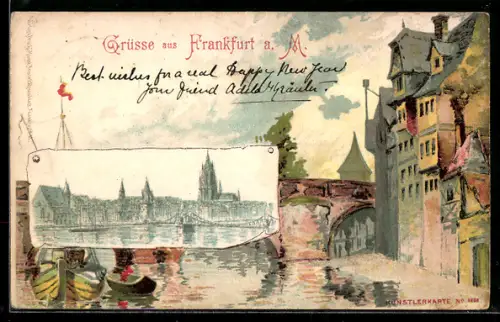 Grüsse aus Frankfurt a. M.
Best wishes for a real Happy New Year
from friend Adele
KÜNSTLERKARTE No.